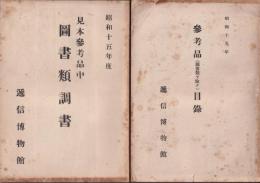 昭和十五年度
見本參考品中
圖書類調書
遞信博物館
昭和十九年
參考品(圖書類ヲ除ク)目錄
遞信博物館